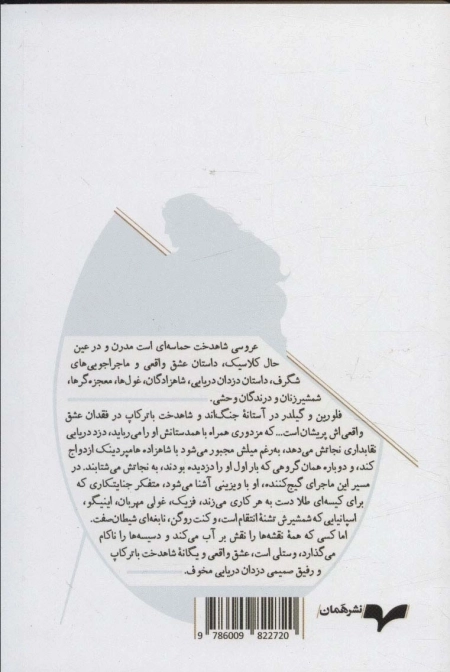 عروسی شاهدخت حماسه‌ای است مدرن و در عین
حال کلاسیک، داستان عشق واقعی و ماجراجویی‌های
شگرف، داستان دزدان دریایی، شاهزادگان، غول‌ها، معجزه‌گرها،
شمشیرزنان و درندگان وحشی.
فلورین و گیلدر در آستانهٔ جنگ‌اند و شاهدخت باترکاپ در فقدان عشق
واقعی‌اش پریشان است... که مزدوری همراه با همدستانش او را می‌رباید، دزد دریایی
نقابداری نجاتش می‌دهد، به‌رغم میلش مجبور می‌شود با شاهزاده هامپردینک ازدواج
کند، و دوباره همان گروهی که بار اول او را دزدیده بودند، به نجاتش می‌شتابند. در
مسیر این ماجرای گیج‌کننده، او با ویزینی آشنا می‌شود، متفکر جنایتکاری که
برای کیسه‌ای طلا دست به هر کاری می‌زند، فزیک، غولی مهربان، اینیگو،
اسپانیایی که شمشیرش تشنهٔ انتقام است، و کنت روگن، نابغه‌ای شیطان‌صفت.
اما کسی که همهٔ نقشه‌ها را نقش بر آب می‌کند و دسیسه‌ها را ناکام
می‌گذارد، وستلی است، عشق واقعی و یگانهٔ شاهدخت باترکاپ
و رفیق صمیمی دزدان دریایی مخوف.
نشر همان
9 786009 822720